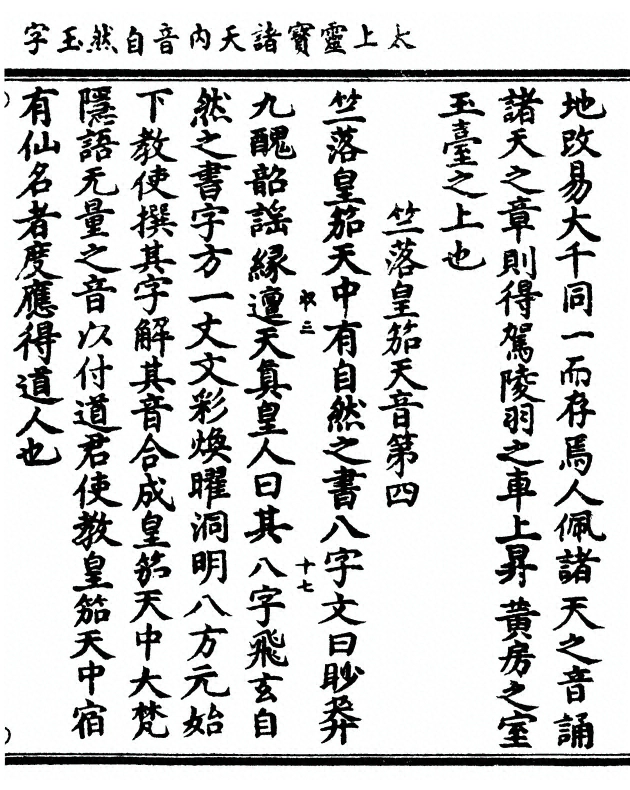 太上靈寶諸天內音自然玉字
地改易大千同一而存焉人佩諸天之音誦
諸天之章則得駕陵羽之車上昇黃房之室
玉臺之上也
竺落皇笳天音第四
竺落皇笳天中有自然之書八字文曰眇莽
収三 十七
九醜韶謠緣邅天真皇人曰其八字飛玄自
然之書字方一丈文彩煥曜洞明八方元始
下教使撰其字解其音合成皇笳天中大梵
隱語无量之音以付道君使教皇笳天中宿
有仙名者度應得道人也